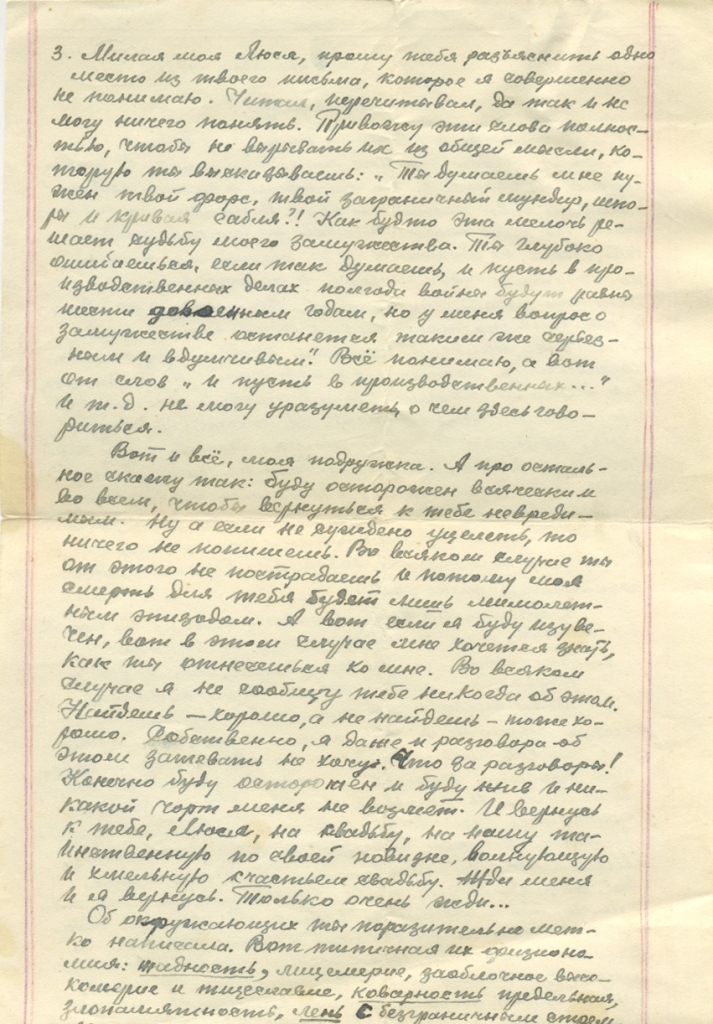 3. Милая моя Люся, прошу тебя разъяснить одно
место из твоего письма, которое я совершенно
не понимаю. Читал, перечитывал, да так и не
могу ничего понять. Привожу эти слова полнос-
тью, чтобы не вырывать их из общей мысли, ко-
торую ты высказываешь: „Ты думаешь мне ну-
жен твой форс, твой заграничный мундир, шпо-
ры и кривая сабля?! Как будто эта мелочь ре-
шает судьбу моего замужества. Ты глубоко
ошибаешься, если так думаешь, и пусть в про-
изводственных делах полгода войны будут равны
шести довоенным годам, но у меня вопрос о
замужестве останется таким же серьез-
ным и вдумчивым". Всё понимаю, а вот
от слов „и пусть в производственных..."
и т.д. не могу уразуметь о чем здесь гово-
риться.
Вот и всё, моя подружка. А про осталь-
ное скажу так: буду осторожен всяческим
во всем, чтобы вернуться к тебе невреди-
мым. Ну а если не суждено уцелеть, то
ничего не попишешь. Во всяком случае ты
от этого не пострадаешь и потому моя
смерть для тебя будет лишь мимолет-
ным эпизодом. А вот если я буду изуве-
чен, вот в этом случае мне хочется знать,
как ты отнесешься ко мне. Во всяком
случае я не сообщу тебе никогда об этом.
Найдешь – хорошо, а не найдешь – тоже хо-
рошо. Собственно, я даже и разговора об
этом затевать не хочу. Что за разговоры!
Конечно буду осторожен и буду жив и ни-
какой чорт меня не возмет. И вернусь
к тебе, Люся, на свадьбу, на нашу та-
инственную по своей новизне, волнующую
и хмельную счастьем свадьбу. Жди меня
и я вернусь. Только очень жди...
Об окружающих ты поразительно мет-
ко написала. Вот типичная их физионо-
мия: жадность, лицемерие, заоблачное высо-
комерие и тщеславие, коварность предельная,
злопамятность, лень с безграничным